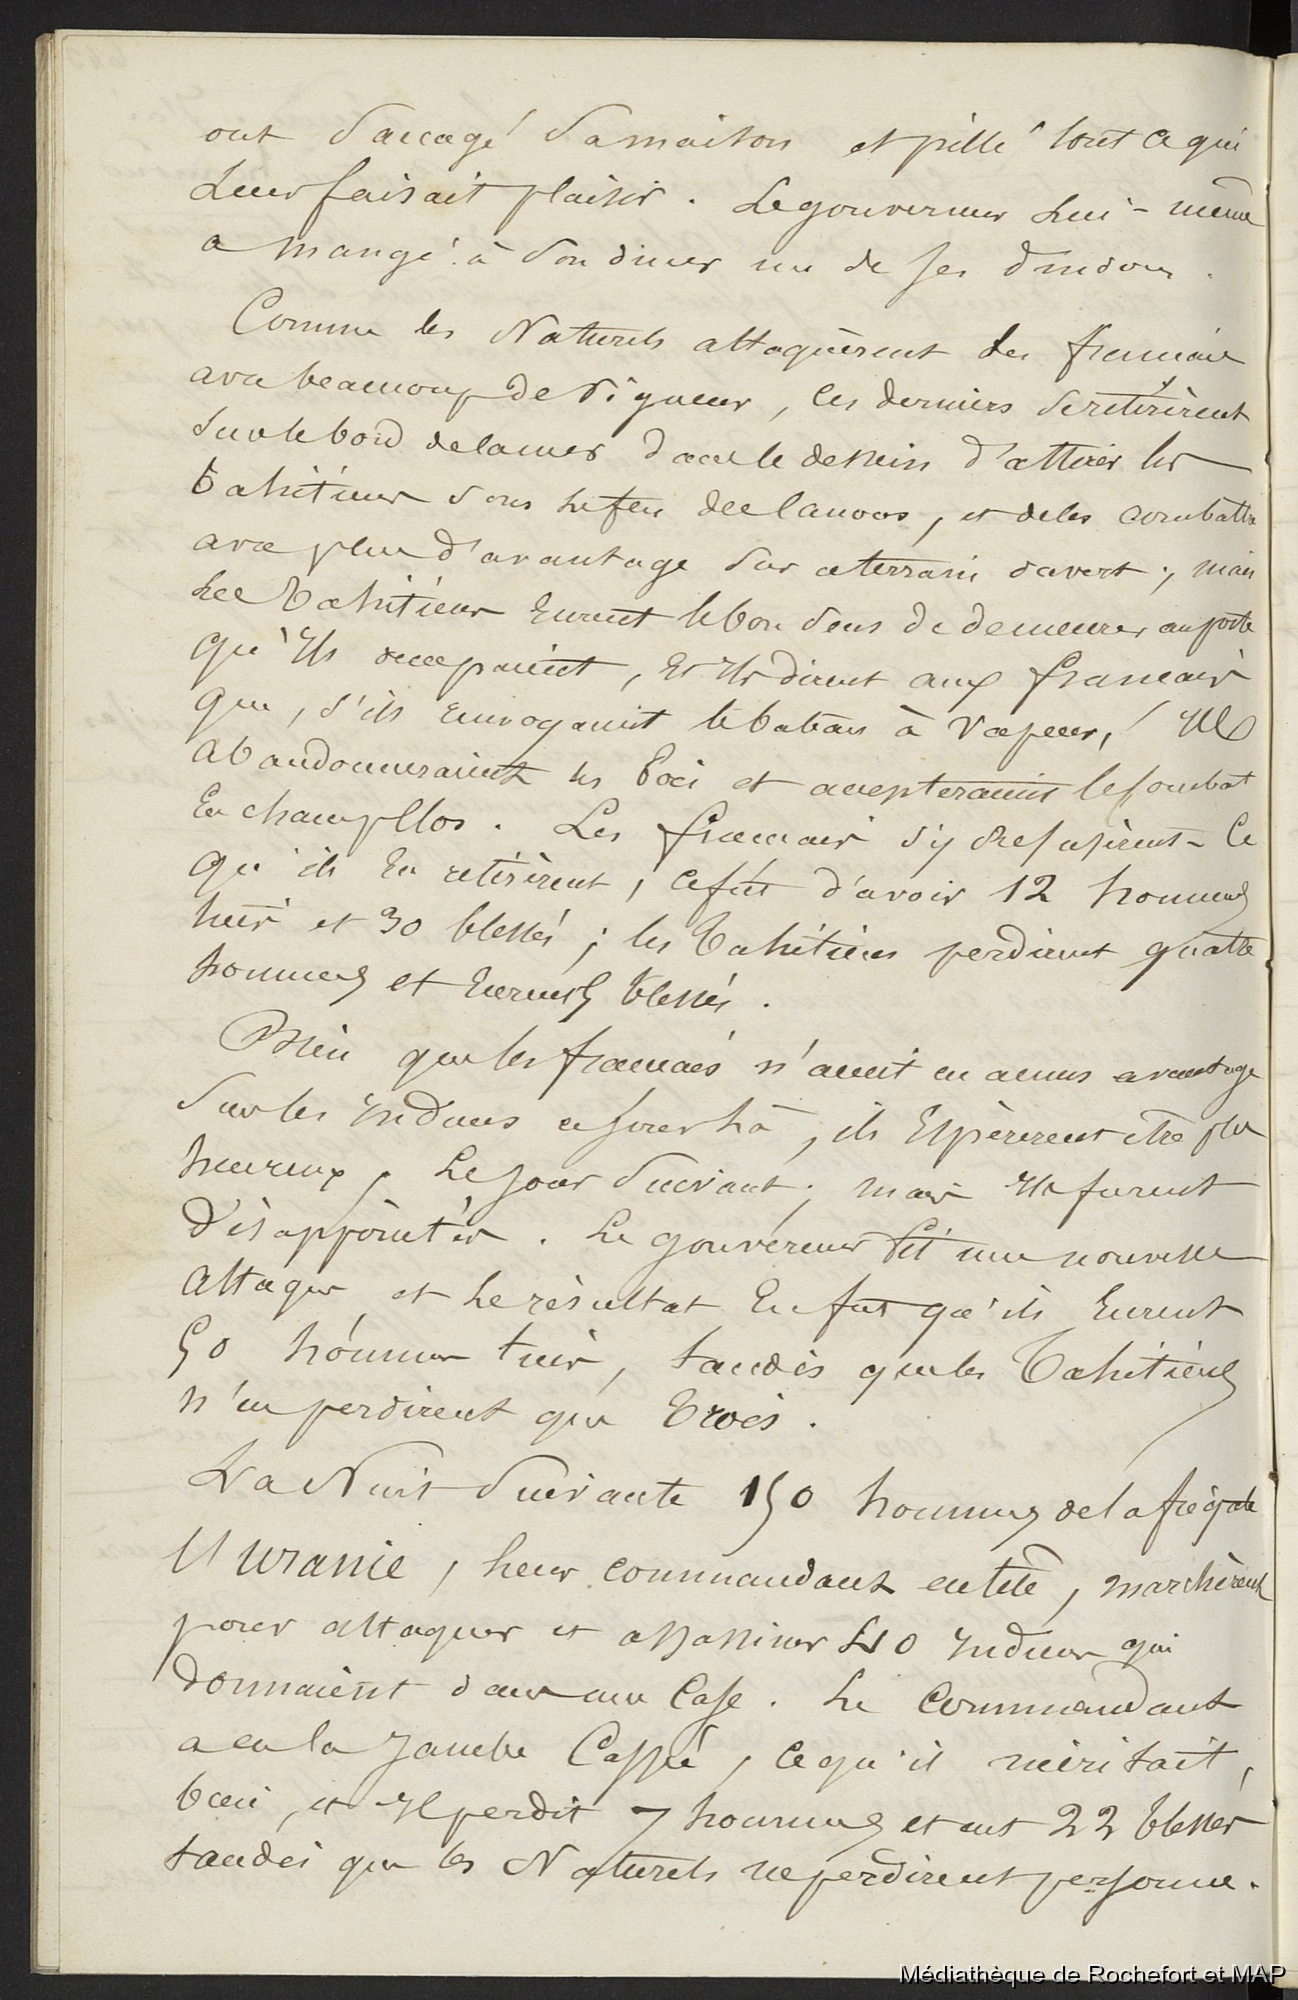 ont saccagé sa maison et pillé tout ce qui
leur faisait plaisir. Le gouverneur lui-même
a mangé à son diner un de ses dindons.
Comme les Naturels attaquèrent les français
avec beaucoup de vigueur, ces derniers se retirèrent
sur le bord de la mer dans le dessein d'attirer les
tahitiens sous le feu des canons, et de les combattre
avec plus d'avantage sur ce terrain ouvert; mais
les Tahitiens eurent le bon sens de demeurer au poste
qu'ils occupaient, et ils dirent aux français
que, s'ils renvoyaient le bateau à vapeur, ils
abandonneraient les bois et accepteraient le combat
en champ clos. Les français s'y refusèrent. Ce
qu'ils en retirèrent, ce fut d'avoir 12 hommes
tués et 30 blessés; les tahitiens perdirent quatre
hommes et eurent 5 blessés.
Bien que les français n'aient eu aucun avantage
sur les Indiens ce jour là, ils espérèrent être plus
heureux, le jour suivant; mais ils furent
désappointés. Le gouverneur fit une nouvelle
attaque et le résultat en fut qu'ils eurent
50 hommes tués, tandis que les Tahitiens
n'en perdirent que trois.
La Nuit suivante 150 hommes de la frégate
l'Uranie, leur commandant en tête, marchèrent
pour attaquer et assassiner 40 Indiens qui
dormaient dans une case. Le Commandant
a eu la jambe cassée, ce qu'il méritait,
bien, et il perdit 7 hommes et eut 22 blessés
tandis que les Naturels ne perdirent personne.
Médiathèque de Rochefort et MAP